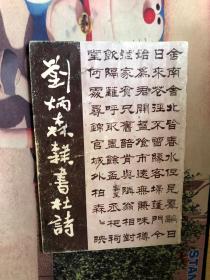 劉炳森隸書杜詩
舍南舍北皆春水但見群鷗日
日來花徑不曾緣客掃蓬門今
始為君開盤飧市遠無兼味樽
酒家貧只舊醅肯與鄰翁相對
飲隔籬呼取盡餘杯丞相祠
堂何處尋錦官城外柏森〻映
STAN